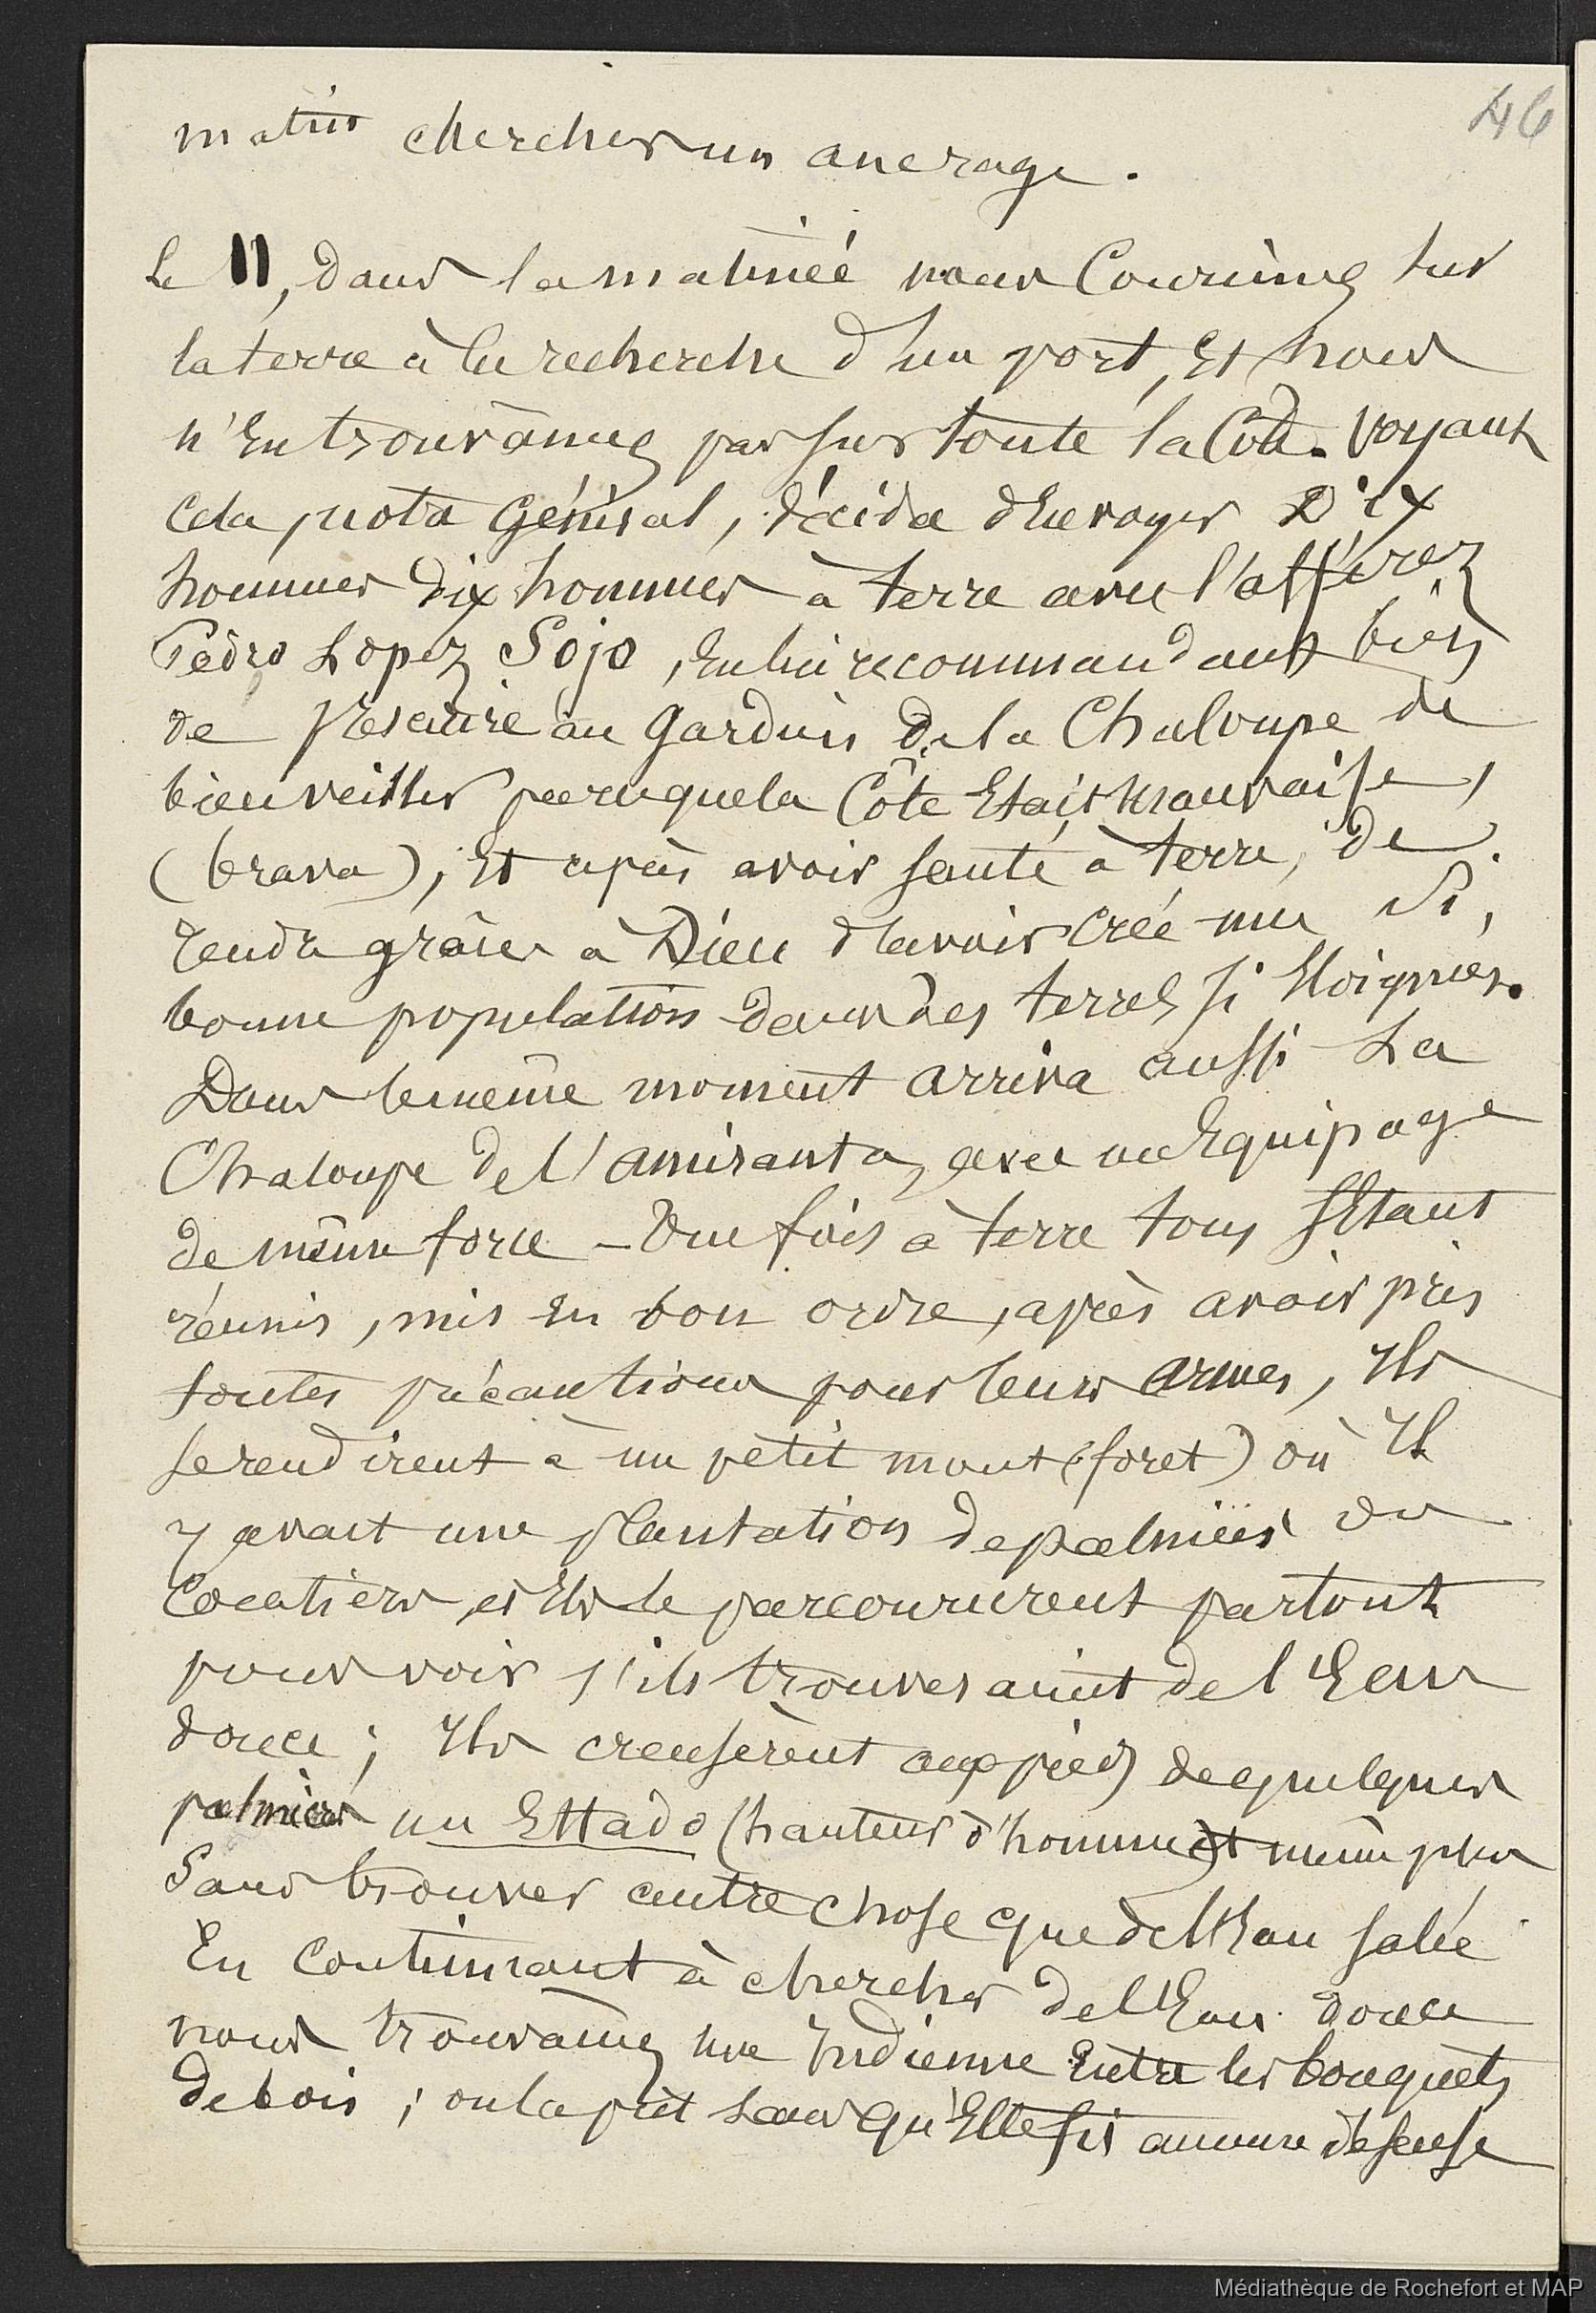 46
matin chercher un ancrage.
Le 11, dans la matinée nous courûmes sur
la terre à la recherche d'un port, Et nous
n'En trouvâmes pas sur toute la Côte. Voyant
cela, notre Général, décida d'Envoyer Dix
hommes dix hommes à terre avec l'afférez
Pedro Lopez Sojo, En lui recommandant bien
de prescrire au gardien de la Chaloupe de
bien veiller parceque la Côte Etait mauvaise,
(brava), Et après avoir sauté à terre, de
rendre grâces à Dieu d'avoir créé une si,
bonne population dans des terres si Eloignées.
Dans le même moment arriva aussi La
Chaloupe de l'amiranta, avec un Equipage
de même force - Une fois à terre tous s'Etant
réunis, mis En bon ordre, après avoir pris
toutes précautions pour leurs armes, Ils
se rendirent à un petit mont (foret) où Il
y avait une plantation de palmiers ou
Cocotiers, et Ils le parcoururent partout
pour voir s'ils trouveraient de l'Eau
douce; Ils creusèrent aux pieds de quelques
palmiers un Ettado (hauteur d'homme) Et même plus
Sans trouver autre chose que de l'Eau salée
En continuant à chercher de l'Eau douce
nous trouvâmes une Indienne Entre les bouquets
de bois; on la prit sans qu'Elle fit aucune défense
Médiathèque de Rochefort et MAP